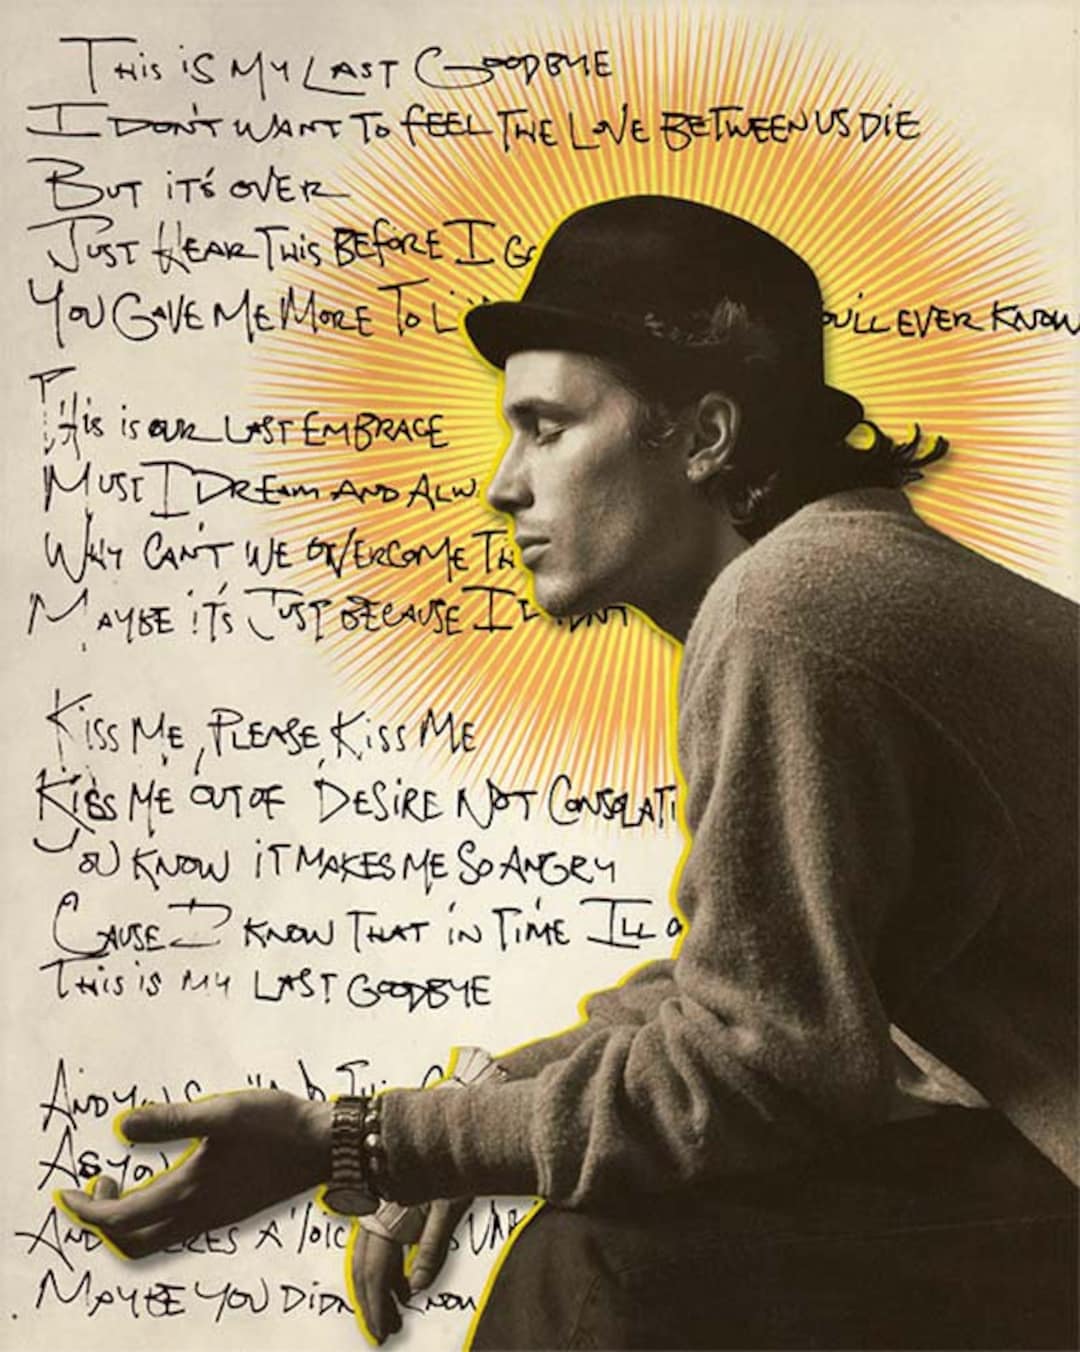 THIS IS MY LAST GOODBYE
I DON'T WANT TO FEEL THE LOVE BETWEEN US DIE
BUT IT'S OVER
JUST HEAR THIS BEFORE I GO
YOU GAVE ME MORE TO LI OU'LL EVER KNOW
THIS IS OUR LAST EMBRACE
MUST I DREAM AND ALW
WHY CAN'T WE OVERCOME TH
MAYBE IT'S JUST BECAUSE I
KISS ME, PLEASE KISS ME
KISS ME OUT OF DESIRE NOT CONSOLATI
YOU KNOW IT MAKES ME SO ANGRY
CAUSE I KNOW THAT IN TIME I'LL
THIS IS MY LAST GOODBYE
AND
AS YOU
AND A VOIC
MAYBE YOU DIDN KNOW